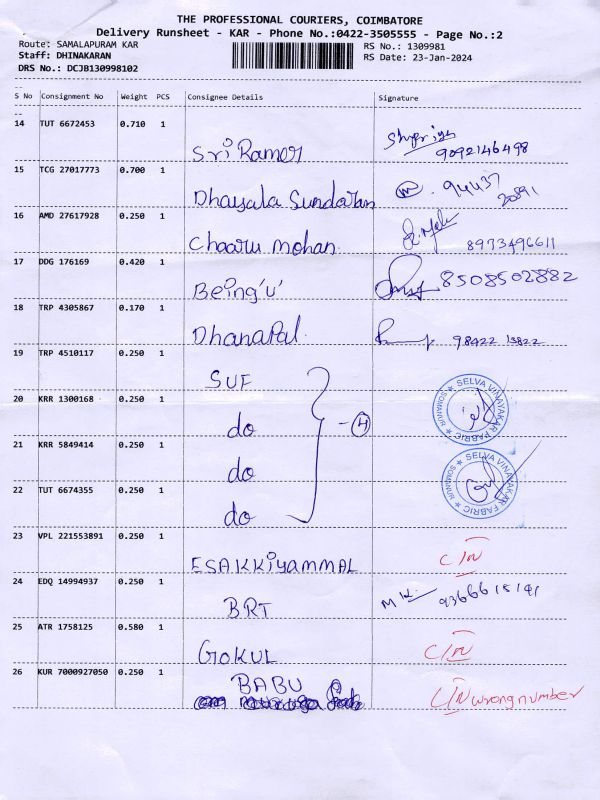 THE PROFESSIONAL COURIERS, COIMBATORE
Delivery Runsheet - KAR - Phone No.:0422-3505555 - Page No.:2
Route: SAMALAPURAM KAR
RS No.: 1309981
Staff: DHINAKARAN
RS Date: 23-Jan-2024
DRS No.: DCJB130998102
S No Consignment No Weight PCS Consignee Details Signature
14 TUT 6672453 0.710 1
Sri Ramor 9092146498
15 TCG 27017773 0.700 1
Dhaysala Sundaran 94437
20891
16 AMD 27617928 0.250 1
Chaaru mohan 8973496611
17 DDG 176169 0.420 1
Being'u' 8508502882
18 TRP 4305867 0.170 1
DhanaPal 98422 13822
19 TRP 4510117 0.250 1
SUF
20 KRR 1300168 0.250 1
do - 4
SELVA VINAYAKAR FABRIC
SOMANUR
21 KRR 5849414 0.250 1
do
SELVA VINAYAKAR FABRIC
SOMANUR
22 TUT 6674355 0.250 1
do
23 VPL 221553891 0.250 1
ESAKKiyammAL C/N
24 EDQ 14994937 0.250 1
BRT 9366618141
25 ATR 1758125 0.580 1
GOKUL C/N
26 KUR 7000927050 0.250 1
BABU
wrong number